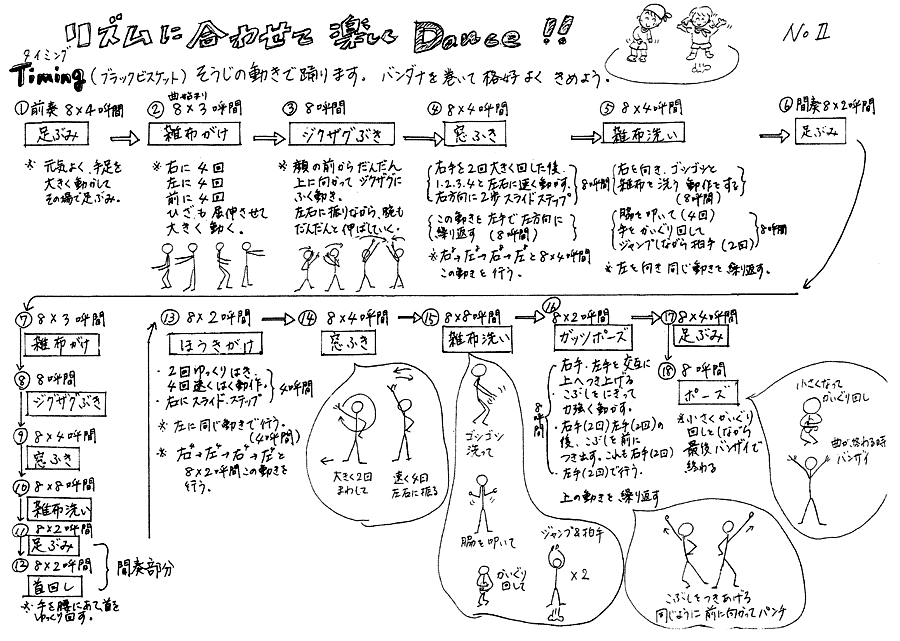 リズムに合わせて楽しく Dance!!
No II
タイミング
Timing (ブラックビスケット) そうじの動きで踊ります。バンダナを巻いて格好よくきめよう。
① 前奏 8×4呼間
足ぶみ
※ 元気よく、手足を
大きく動かして
その場で足ぶみ。
曲始まり
② 8×3呼間
雑布がけ
※ 右に4回
左に4回
前に4回
ひざも屈伸させて
大きく動く。
③ 8呼間
ジクザグぶき
※ 顔の前からだんだん
上に向かってジクザグに
ふく動き。
左右に振りながら、腕も
だんだんと伸ばしていく。
④ 8×4呼間
窓ふき
右手を2回大きく回した後、
1.2.3.4と左右に速く動かす。
右方向に2歩スライドステップ
8呼間
この動きを左手で左方向に
繰り返す (8呼間)
※ 右→左→右→左と8×4呼間
この動きを行う。
⑤ 8×4呼間
雑布洗い
右を向き、ゴッシゴッシと
雑布を洗う動作をする
(8呼間)
脇を叩いて (4回)
手をかいぐり回して
ジャンプしながら拍手 (2回)
8呼間
※ 左を向き同じ動きを繰り返す。
⑥ 間奏 8×2呼間
足ぶみ
⑦ 8×3呼間
雑布がけ
⑧ 8呼間
ジグザグぶき
⑨ 8×4呼間
窓ふき
⑩ 8×8呼間
雑布洗い
⑪ 8×2呼間
足ぶみ
⑫ 8×2呼間
首回し
間奏部分
※ 手を腰にあて、首を
ゆっくり回す。
⑬ 8×2呼間
ほうきがけ
・2回ゆっくりはき、
4回速くはく動作。
・右にスライド・ステップ
4呼間
※ 左に同じ動きで行う。
(4呼間)
※ 右→左→右→左と
8×2呼間この動きを
行う。
⑭ 8×4呼間
窓ふき
大きく2回
まわして
速く4回
左右に振る
⑮ 8×8呼間
雑布洗い
ゴシゴシ
洗って
脇を叩いて
かいぐり
回して
ジャンプ&拍手
×2
⑯ 8×2呼間
ガッツポーズ
8呼間
右手・左手を交互に
上へつき上げる
・こぶしをにぎって
力強く動かす。
・右手(2回)左手(2回)の
後、こぶしを前に
つき出す。これも右手(2回)
・左手(2回)で行う。
上の動きを繰り返す
こぶしをつきあげる
同じように前に向かってパンチ
⑰ 8×4呼間
足ぶみ
⑱ 8呼間
ポーズ
※ 小さくかいぐり
回しをしながら
最後バンザイで
終わる
小さくなって
かいぐり回し
曲が終わる時
バンザイ